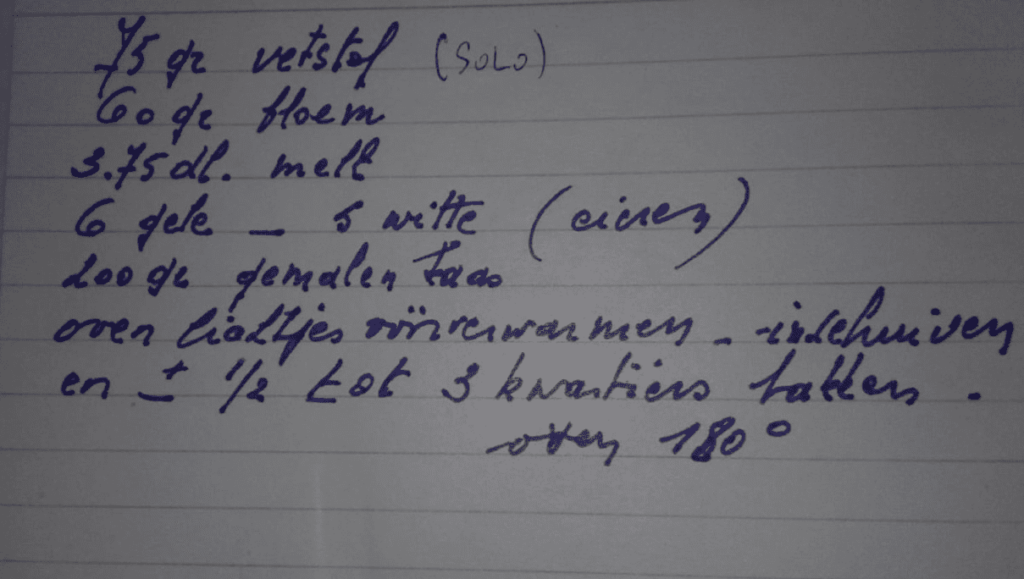 75 gr vetstof (SOLO)
60 gr bloem
3.75 dl. melk
6 gele - 5 witte (eieren)
200 gr gemalen kaas
oven lichtjes vóórverwarmen - inschuiven
en ± 1/2 tot 3 kwartiers bakken.
oven 180°